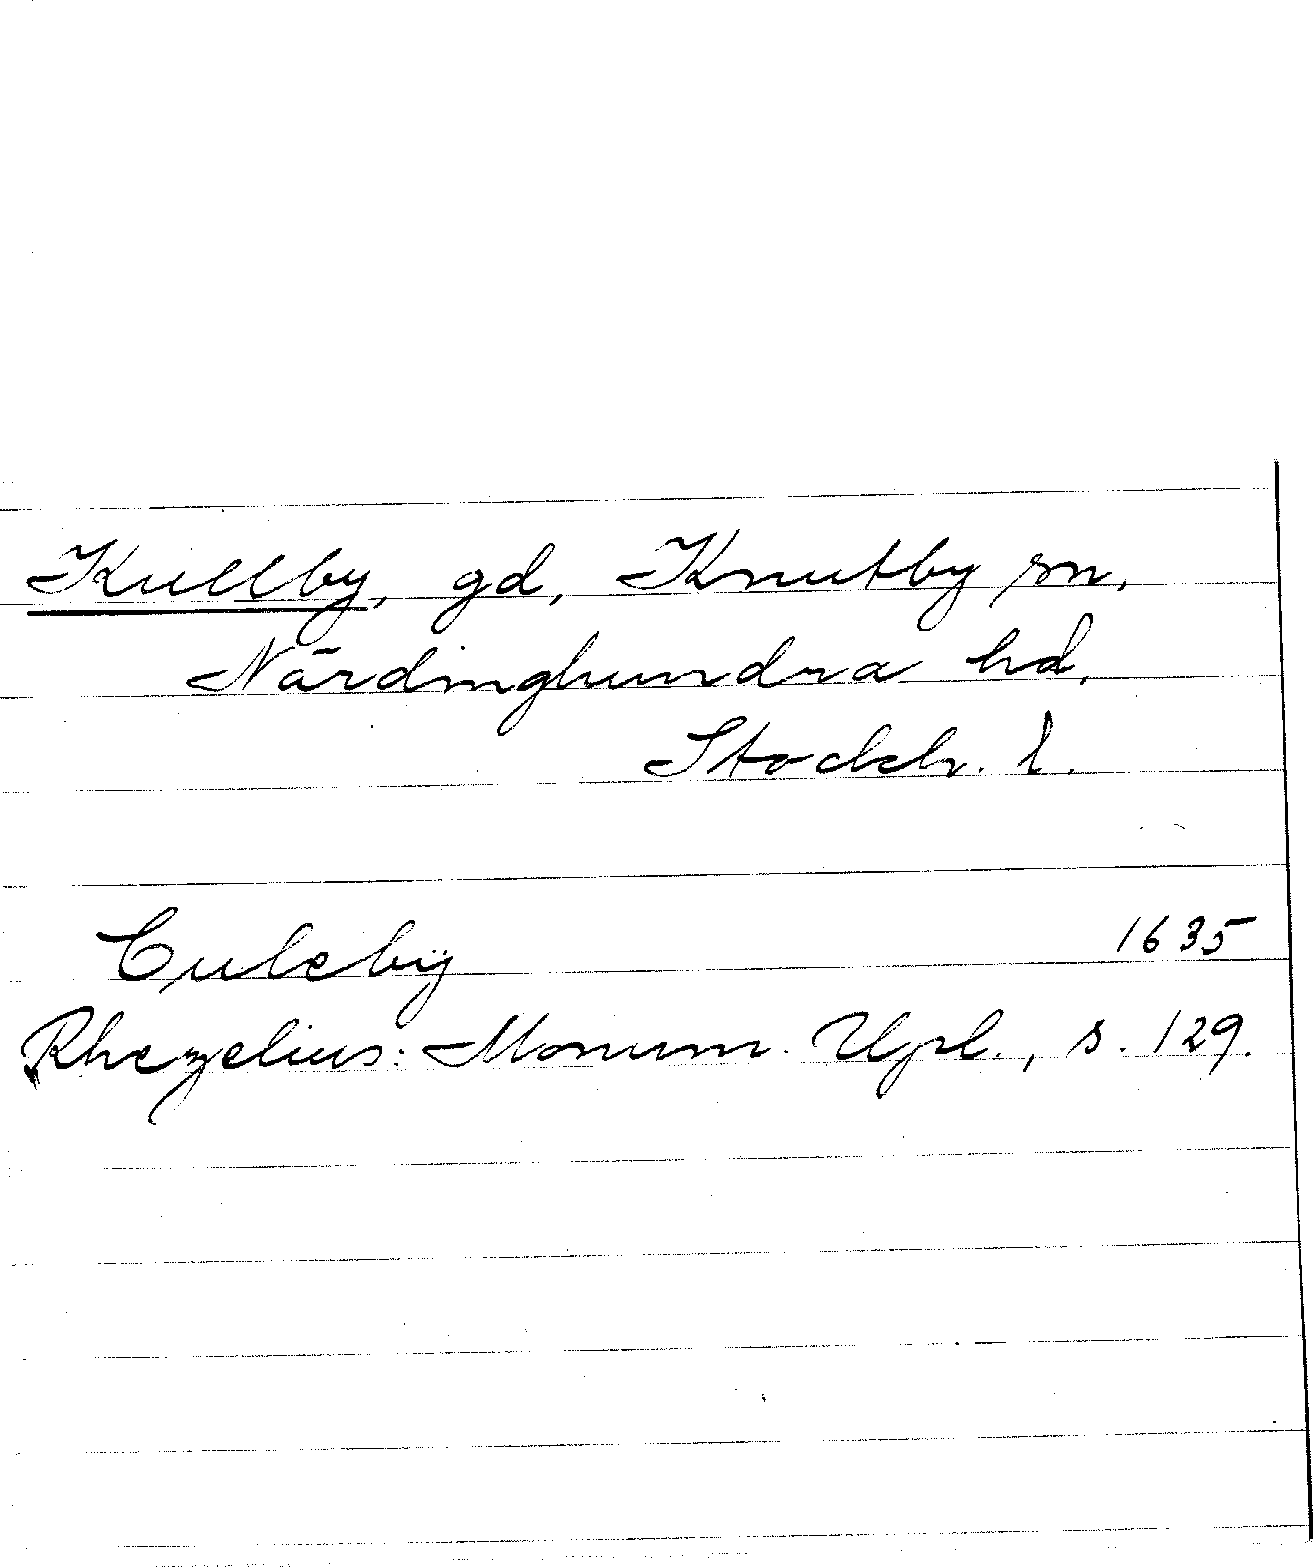 Kullby, gd, Knutby sn,
Närdinghundra hd,
Stockh. l.
Culeby 1635
Rhezelius: Monum. Upl., s. 129.